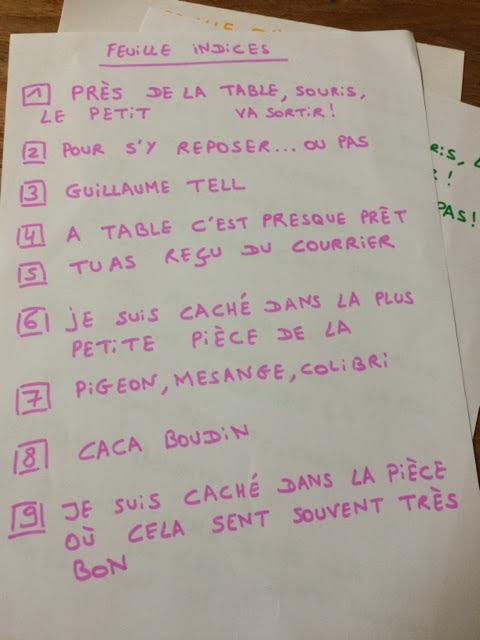 FEUILLE INDICES
1 PRÈS DE LA TABLE, SOURIS,
LE PETIT VA SORTIR!
2 POUR S'Y REPOSER... OU PAS
3 GUILLAUME TELL
4 A TABLE C'EST PRESQUE PRÊT
5 TU AS REÇU DU COURRIER
6 JE SUIS CACHÉ DANS LA PLUS
PETITE PIÈCE DE LA
7 PIGEON, MESANGE, COLIBRI
8 CACA BOUDIN
9 JE SUIS CACHÉ DANS LA PIÈCE
OÙ CELA SENT SOUVENT TRÈS
BON
PAS!